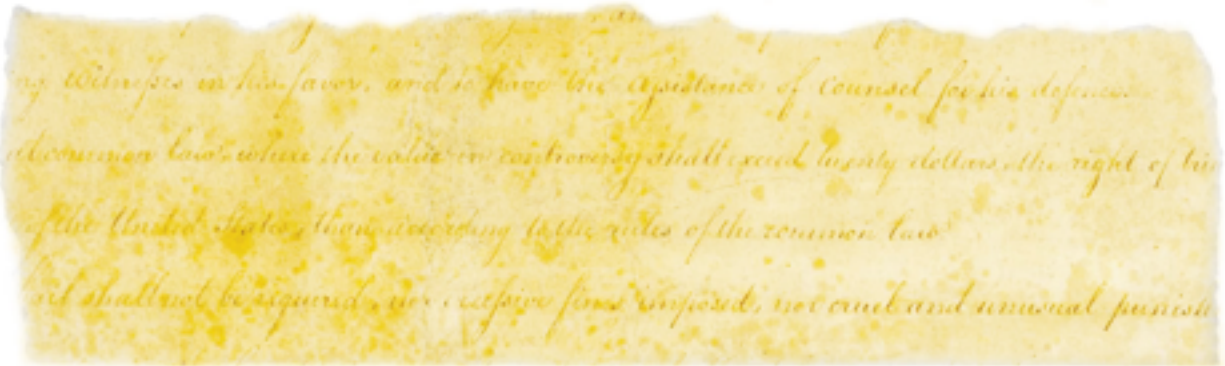 ng witnesses in his favor, and to have the assistance of counsel for his defence.
at common law, where the value in controversy shall exceed twenty dollars, the right of tri
of the United States, than according to the rules of the common law.
bail shall not be required, nor excessive fines imposed, nor cruel and unusual punish